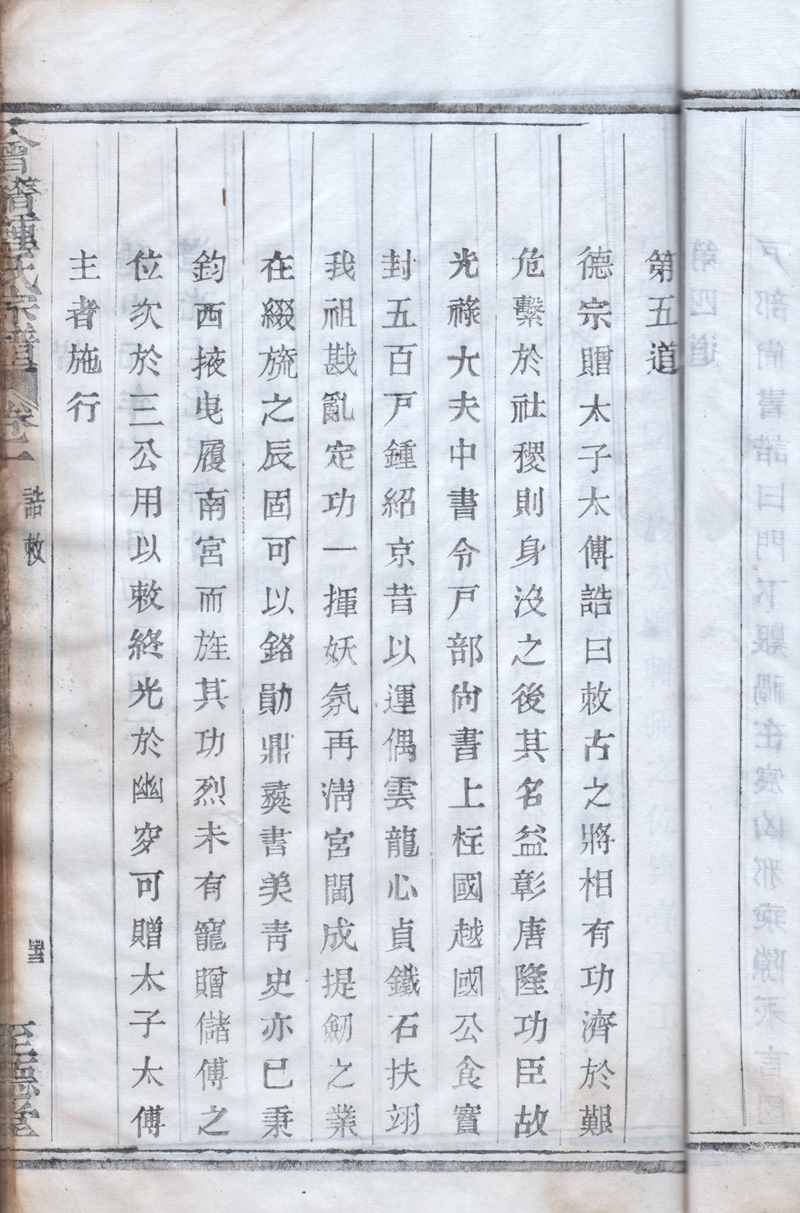 第五道
德宗贈太子太傅誥曰敕古之將相有功濟於艱
危繫於社稷則身沒之後其名益彰唐隆功臣故
光祿大夫中書令戸部尚書上柱國越國公食實
封五百戸鍾紹京昔以運偶雲龍心貞鐵石扶翊
我祖戡亂定功一揮妖氛再淸宮閫成提劒之業
在綴旒之辰固可以銘勛鼎彝書美靑史亦已秉
鈞西掖曳履南宮而旌其功烈未有寵贈儲傅之
位次於三公用以敕終光於幽穸可贈太子太傅
主者施行
鍾氏宗譜
卷一
誥敕
至德堂